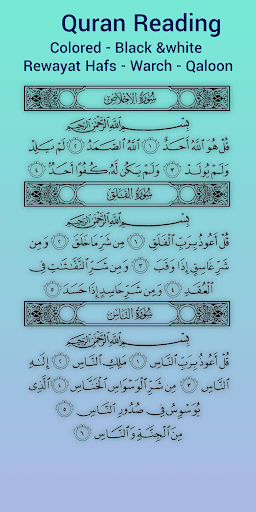 Quran Reading
Colored - Black &white
Rewayat Hafs - Warch - Qaloon
سُورَةُ الإِخْلَاصِ
بِسْمِ اللَّهِ الرَّحْمَٰنِ الرَّحِيمِ
قُلْ هُوَ اللَّهُ أَحَدٌ ١ اللَّهُ الصَّمَدُ ٢ لَمْ يَلِدْ
وَلَمْ يُولَدْ ٣ وَلَمْ يَكُن لَّهُ كُفُوًا أَحَدٌ ٤
سُورَةُ الفَلَقِ
بِسْمِ اللَّهِ الرَّحْمَٰنِ الرَّحِيمِ
قُلْ أَعُوذُ بِرَبِّ الْفَلَقِ ١ مِن شَرِّ مَا خَلَقَ ٢ وَمِن
شَرِّ غَاسِقٍ إِذَا وَقَبَ ٣ وَمِن شَرِّ النَّفَّاثَاتِ فِي
الْعُقَدِ ٤ وَمِن شَرِّ حَاسِدٍ إِذَا حَسَدَ ٥
سُورَةُ النَّاسِ
بِسْمِ اللَّهِ الرَّحْمَٰنِ الرَّحِيمِ
قُلْ أَعُوذُ بِرَبِّ النَّاسِ ١ مَلِكِ النَّاسِ ٢ إِلَٰهِ
النَّاسِ ٣ مِن شَرِّ الْوَسْوَاسِ الْخَنَّاسِ ٤ الَّذِي
يُوَسْوِسُ فِي صُدُورِ النَّاسِ ٥
مِنَ الْجِنَّةِ وَالنَّاسِ ٦